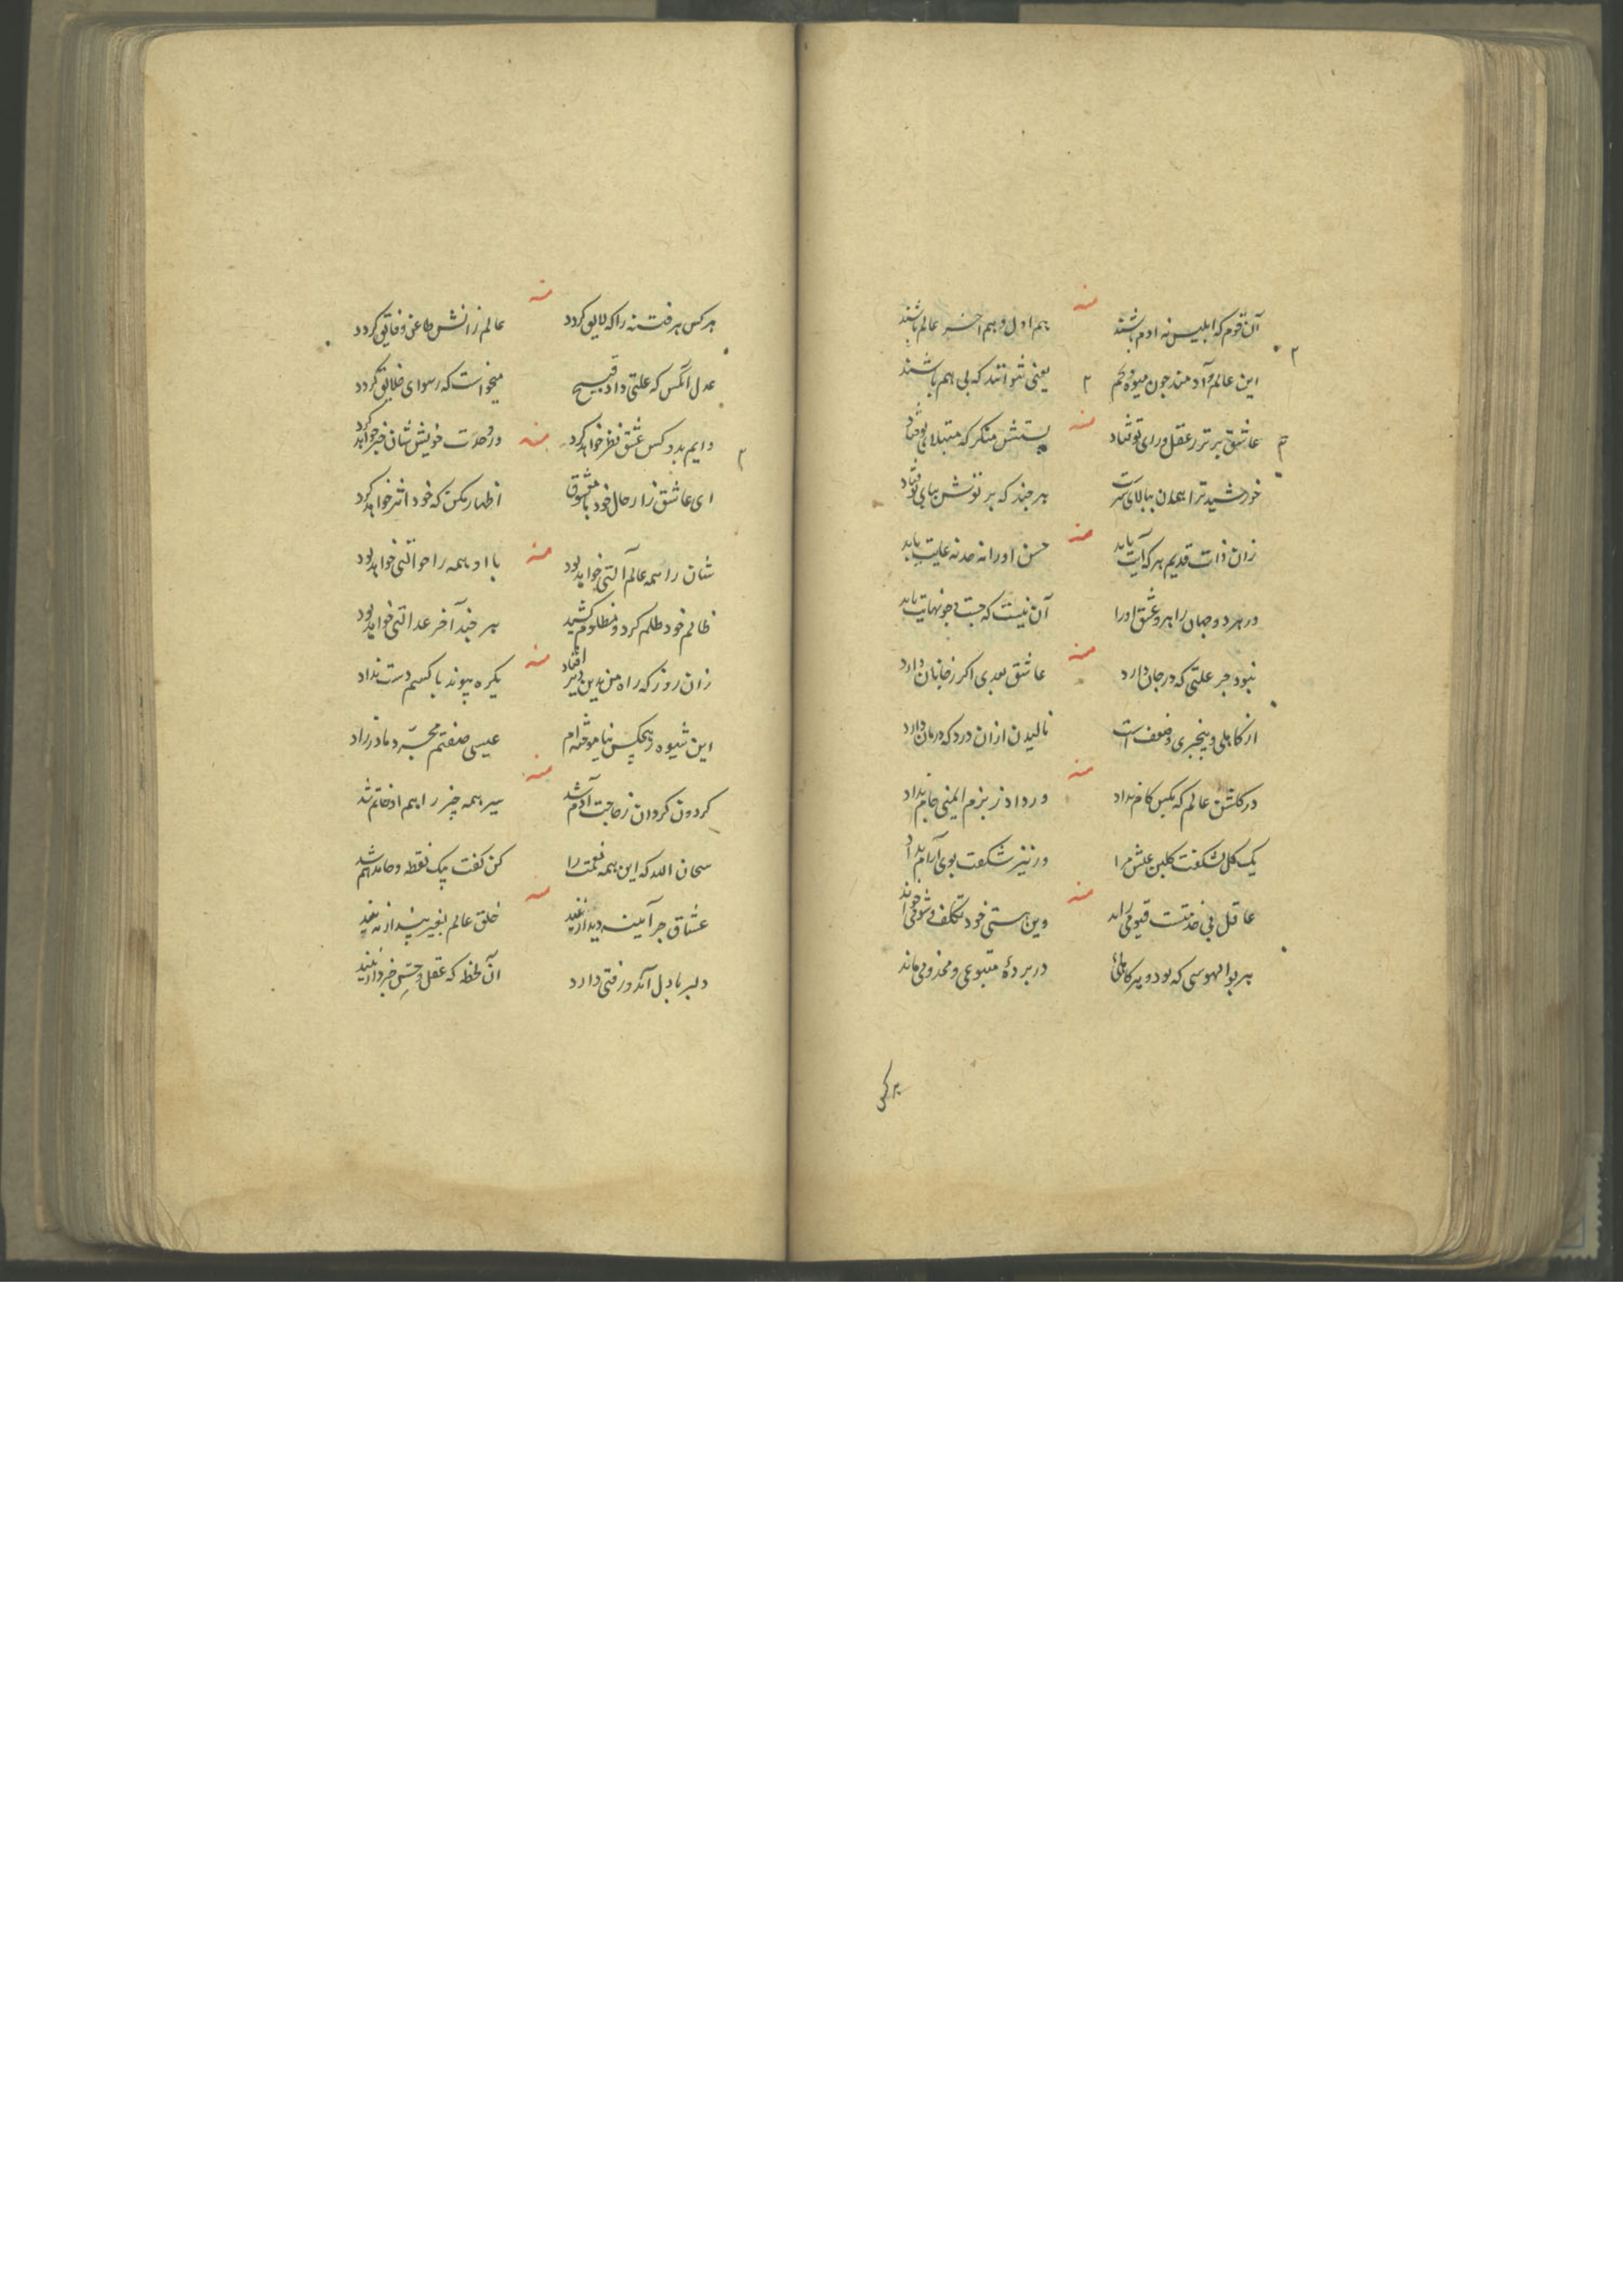 منه
آن قوم که ابلیس نه ادم باشند هم اول و هم اخر عالم باشند
این عالم و آدمند چون میوه و تخم یعنی نتوانند که بی هم باشند
منه
عاشق برتر ز عقل و رای تو فتاد پستش منکر که مبتلای تو فتاد
خورشید ترا همدن ببالای سرت هر چند که پرتوش بپای تو فتاد
منه
زان ذات قدیم هر که آیت یابد حسن او را نه حد نه غایت یابد
در هر دو جهان راهرو عشق او را آن نیست که جست و جو نهایت یابد
منه
نبود جز علتی که در جان دارد عاشق بعدی اکر ز جانان دارد
از کاهلی و بیخبری و ضعف است نالیدن ازان درد که درمان دارد
منه
در کلشن عالم که بکس کام نداد ور داد ز بزم ایمنی جام نداد
یک کل نشکفت کلبن عیش مرا ور نیز شکفت بوی آرام نداد
منه
عاقل پی خدمتست قیومی راند وین هستی خود تکلف و شومی خواند
هر بوالهوسی که بود و پیر کاهلی در پردهٔ متبوعی و مخدومی ماند
هر کس
منه
هر کس هر فتنه را که لایق کردد عالم زانش طاعن و فایق کردد
عدل انکس که علتی داد قبیح میخواست که رسوای خلایق کردد
منه
دایم بدو کس عشق نظر خواهد کرد وز وحدت خویش شان خبر خواهد کرد
ای عاشق زار حال خود با معشوق اظهار مکن که خود اثر خواهد کرد
منه
شان را همه عالم آلتی خواهد بود با او همه را حوالتی خواهد بود
ظالم خود ظلم کرد و مظلوم کشید هر چند آخر عدالتی خواهد بود
منه
زان روز که راه من بدین دیر افتاد یکره پیوند با کسم دست نداد
این شیوه ز هیچکس نیاموخته ام عیسی صفتم مجرد مادرزاد
منه
کردون کردان ز حاجت آدم شد سیر همه چیز را هم او خاتم شد
سبحان الله که این همه نعمت را کن کفت بیک نقطه و حامد هم شد
منه
عشاق جز آینه دیدار نیند خلق عالم بغیر پندار نیند
دلبر با دل آمد و رفتی دارد آن لحظه که عقل و حس خبردار نیند